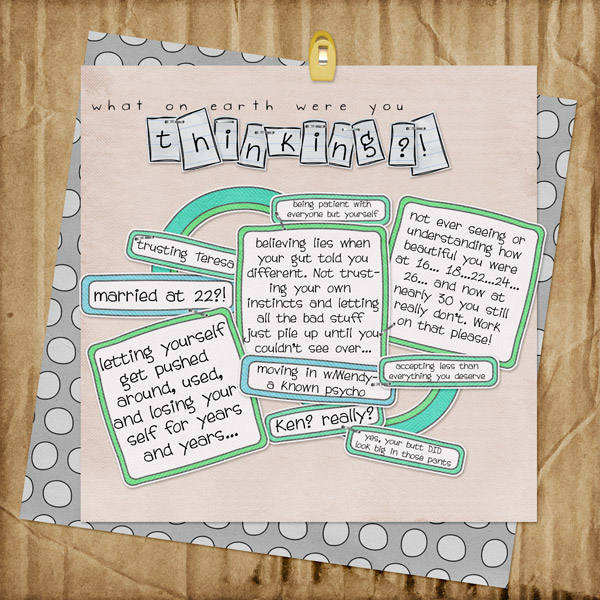 what on earth were you
thinking?!
being patient with
everyone but yourself
trusting Teresa
married at 22?!
believing lies when
your gut told you
different. Not trust-
ing your own
instincts and letting
all the bad stuff
just pile up until you
couldn't see over...
not ever seeing or
understanding how
beautiful you were
at 16... 18...22...24...
26... and now at
nearly 30 you still
really don't. Work
on that please!
letting yourself
get pushed
around, used,
and losing your
self for years
and years...
moving in w/Wendy-
a known psycho
accepting less than
everything you deserve
Ken? really?
yes, your butt DID
look big in those pants